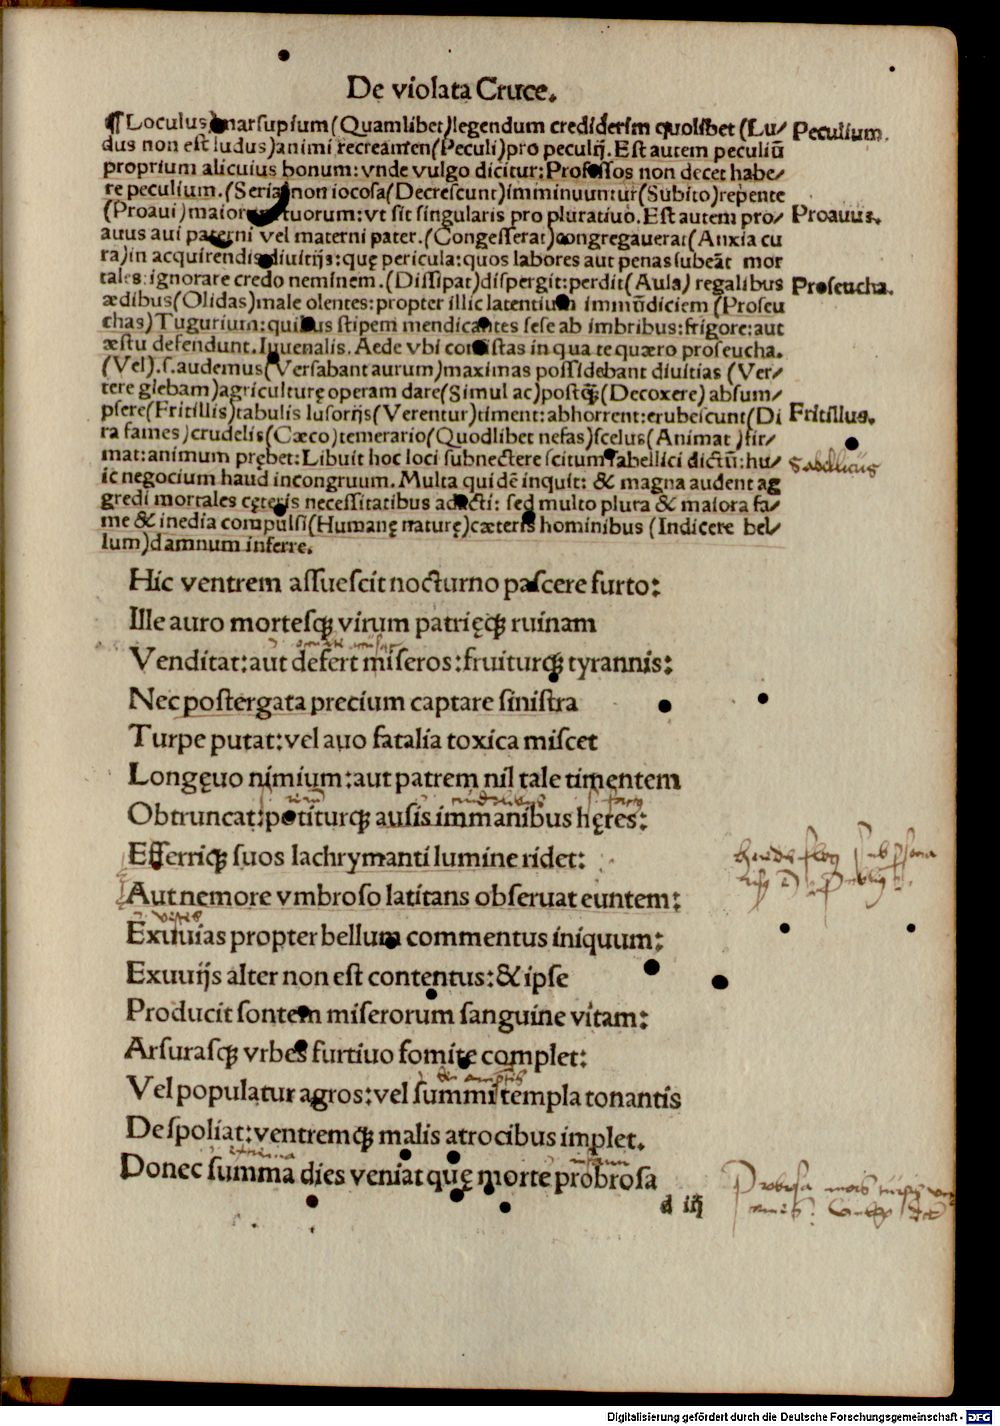 De violata Cruce.
¶Loculus)marsupium(Quamlibet)legendum crediderim quolibet (Lu/ Peculium.
dus non est ludus)animi recreanten(Peculi)pro peculij. Est autem peculiū
proprium alicuius bonum:vnde vulgo dicitur:Professos non decet habe/
re peculium.(Seria)non iocosa(Decrescunt)imminuuntur(Subito)repente
(Proaui)maiorum tuorum:vt sit singularis pro pluratiuo. Est autem pro/ Proauus.
auus aui paterni vel materni pater.(Congesserat)congregauerat(Anxia cu
ra)in acquirendis diuitijs:quę pericula:quos labores aut penas subeāt mor
tales:ignorare credo neminem.(Dissipat)dispergit:perdit(Aula) regalibus Proseucha.
ædibus(Olidas)male olentes:propter illic latentium immūdiciem (Proseu
chas)Tugurium:quibus stipem mendicantes sese ab imbribus:frigore:aut
æstu defendunt. Iuuenalis. Aede vbi consistas in qua te quæro proseucha.
(Vel).s.audemus(Versabant aurum)maximas possidebant diuitias (Ver/
tere glebam)agriculturę operam dare(Simul ac)postq̃(Decoxere) absum/
psere(Fritillis)tabulis lusorijs(Verentur)timent:abhorrent:erubescunt(Di Fritillus.
ra fames)crudelis(Cæco)temerario(Quodlibet nefas)scelus(Animat)fir/
mat:animum prębet:Libuit hoc loci subnectere scitum Sabellici dictū:hu/ Sabellicus
ic negocium haud incongruum. Multa quidē inquit: & magna audent ag
gredi mortales cęteris necessitatibus adacti: sed multo plura & maiora fa/
me & inedia compulsi(Humanę naturę)cæteris hominibus (Indicere bel/
lum)damnum inferre.
Hic ventrem assuescit nocturno pascere furto:
Ille auro mortesq; virum patrięq; ruinam
Venditat:aut defert miseros:fruiturq; tyrannis:
Nec postergata precium captare sinistra
Turpe putat:vel auo fatalia toxica miscet
Longęuo nimium:aut patrem nil tale timentem
Obtruncat:potiturq; ausis immanibus hęres:
Efferriq; suos lachrymanti lumine ridet:
Aut nemore vmbroso latitans obseruat euntem:
Exuuias propter bellum commentus iniquum:
Exuuijs alter non est contentus:& ipse
Producit sontem miserorum sanguine vitam:
Arsurasq; vrbes furtiuo fomite complet:
Vel populatur agros:vel summi templa tonantis
Despoliat:ventremq; malis atrocibus implet.
Donec summa dies veniat quę morte probrosa
d iij
Digitalisierung gefördert durch die Deutsche Forschungsgemeinschaft - DFG